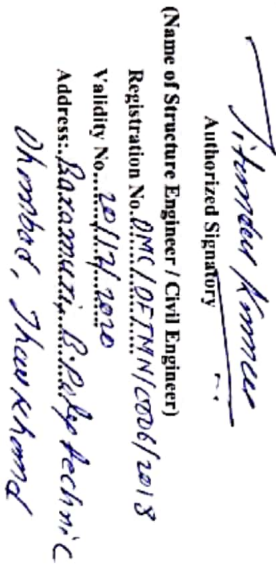 Jitender Kumar
Authorized Signatory
(Name of Structure Engineer / Civil Engineer)
Registration No. DMC/OFTNN/C006/2018
Validity No. 20/12/2020
Address: Baramuri, B. Polytechnic
Dhanbad, Jharkhand